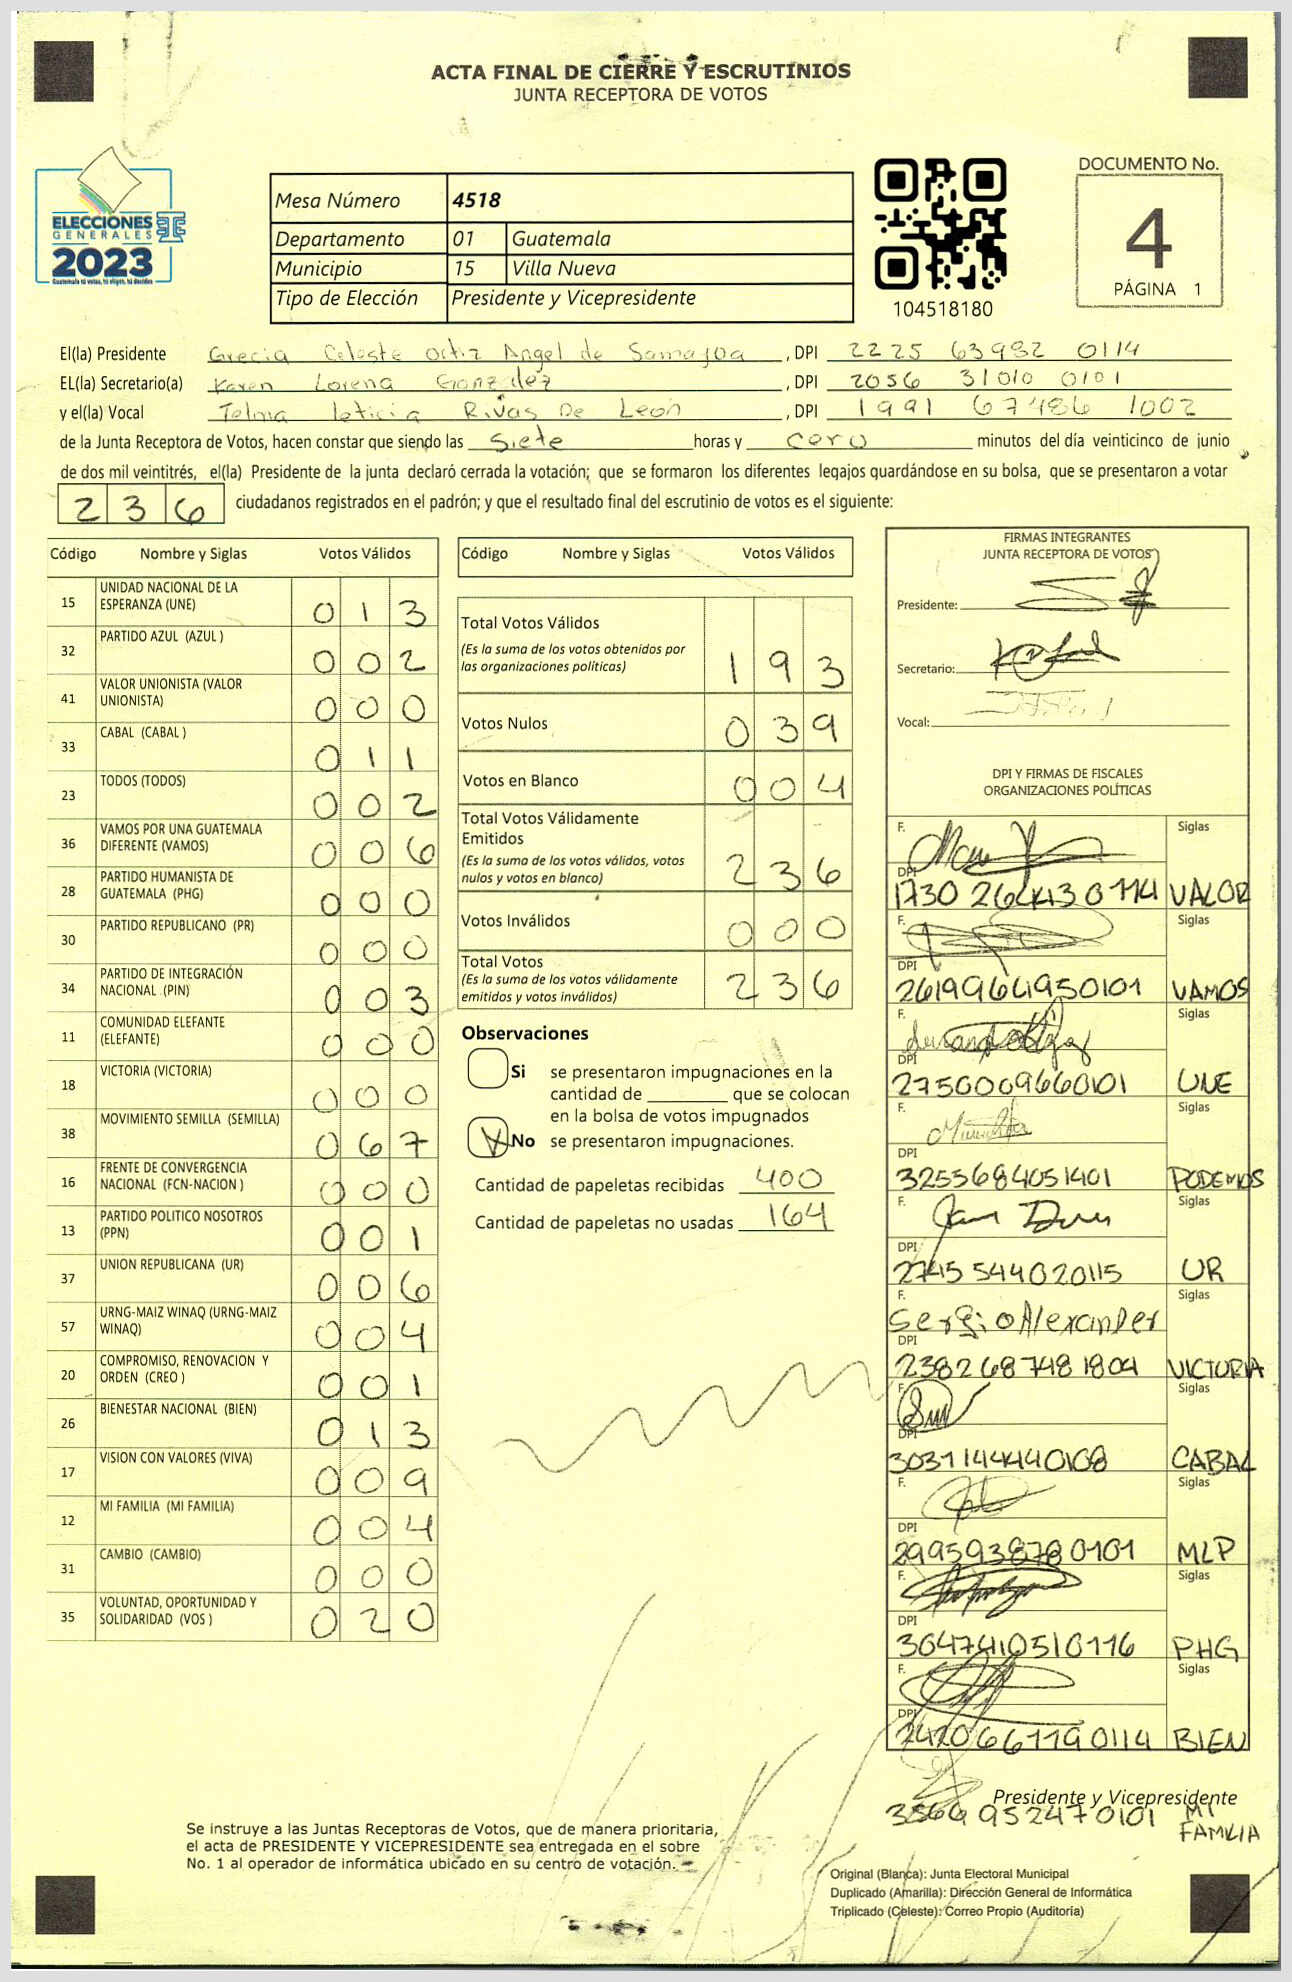 ACTA FINAL DE CIERRE Y ESCRUTINIOS
JUNTA RECEPTORA DE VOTOS
ELECCIONES
GENERALES
2023
Guatemala tú votas, tú eliges, tú decides
Mesa Número 4518
Departamento 01 Guatemala
Municipio 15 Villa Nueva
Tipo de Elección Presidente y Vicepresidente
104518180
DOCUMENTO No.
4
PÁGINA 1
El(la) Presidente Grecia Celeste Ortiz Angel de Samayoa, DPI 2225 63982 0114
EL(la) Secretario(a) Karen Lorena González, DPI 2056 31010 0101
y el(la) Vocal Telma leticia Rivas De León, DPI 1991 67486 1002
de la Junta Receptora de Votos, hacen constar que siendo las Siete horas y cero minutos del día veinticinco de junio
de dos mil veintitrés, el(la) Presidente de la junta declaró cerrada la votación; que se formaron los diferentes legajos guardándose en su bolsa, que se presentaron a votar
236 ciudadanos registrados en el padrón; y que el resultado final del escrutinio de votos es el siguiente:
Código Nombre y Siglas Votos Válidos
15 UNIDAD NACIONAL DE LA ESPERANZA (UNE) 013
32 PARTIDO AZUL (AZUL ) 002
41 VALOR UNIONISTA (VALOR UNIONISTA) 000
33 CABAL (CABAL ) 011
23 TODOS (TODOS) 002
36 VAMOS POR UNA GUATEMALA DIFERENTE (VAMOS) 006
28 PARTIDO HUMANISTA DE GUATEMALA (PHG) 000
30 PARTIDO REPUBLICANO (PR) 000
34 PARTIDO DE INTEGRACIÓN NACIONAL (PIN) 003
11 COMUNIDAD ELEFANTE (ELEFANTE) 000
18 VICTORIA (VICTORIA) 000
38 MOVIMIENTO SEMILLA (SEMILLA) 067
16 FRENTE DE CONVERGENCIA NACIONAL (FCN-NACION ) 000
13 PARTIDO POLITICO NOSOTROS (PPN) 001
37 UNION REPUBLICANA (UR) 006
57 URNG-MAIZ WINAQ (URNG-MAIZ WINAQ) 004
20 COMPROMISO, RENOVACION Y ORDEN (CREO ) 001
26 BIENESTAR NACIONAL (BIEN) 013
17 VISION CON VALORES (VIVA) 009
12 MI FAMILIA (MI FAMILIA) 004
31 CAMBIO (CAMBIO) 000
35 VOLUNTAD, OPORTUNIDAD Y SOLIDARIDAD (VOS ) 020
Código Nombre y Siglas Votos Válidos
Total Votos Válidos
(Es la suma de los votos obtenidos por
las organizaciones políticas) 193
Votos Nulos 039
Votos en Blanco 004
Total Votos Válidamente
Emitidos
(Es la suma de los votos válidos, votos
nulos y votos en blanco) 236
Votos Inválidos 000
Total Votos
(Es la suma de los votos válidamente
emitidos y votos inválidos) 236
Observaciones
Si se presentaron impugnaciones en la
cantidad de ________ que se colocan
en la bolsa de votos impugnados
No se presentaron impugnaciones.
Cantidad de papeletas recibidas 400
Cantidad de papeletas no usadas 164
FIRMAS INTEGRANTES
JUNTA RECEPTORA DE VOTOS
Presidente:
Secretario:
Vocal:
DPI Y FIRMAS DE FISCALES
ORGANIZACIONES POLÍTICAS
F. Siglas
DPI
1730 26443 0114 VALOR
F. Siglas
DPI
2619964950101 VAMOS
F. Siglas
DPI
2750009660101 UNE
F. Siglas
DPI
3255684051401 PODEMOS
F. Siglas
DPI
2745 544020115 UR
F. Siglas
Sergio Alexander
DPI
2382687481804 VICTORIA
F. Siglas
DPI
3031144440108 CABAL
F. Siglas
DPI
2995938780101 MLP
F. Siglas
DPI
3047410510116 PHG
F. Siglas
DPI
2420661190114 BIEN
Presidente y Vicepresidente
3566952470101 MI
FAMILIA
Se instruye a las Juntas Receptoras de Votos, que de manera prioritaria,
el acta de PRESIDENTE Y VICEPRESIDENTE sea entregada en el sobre
No. 1 al operador de informática ubicado en su centro de votación.
Original (Blanca): Junta Electoral Municipal
Duplicado (Amarilla): Dirección General de Informática
Triplicado (Celeste): Correo Propio (Auditoría)